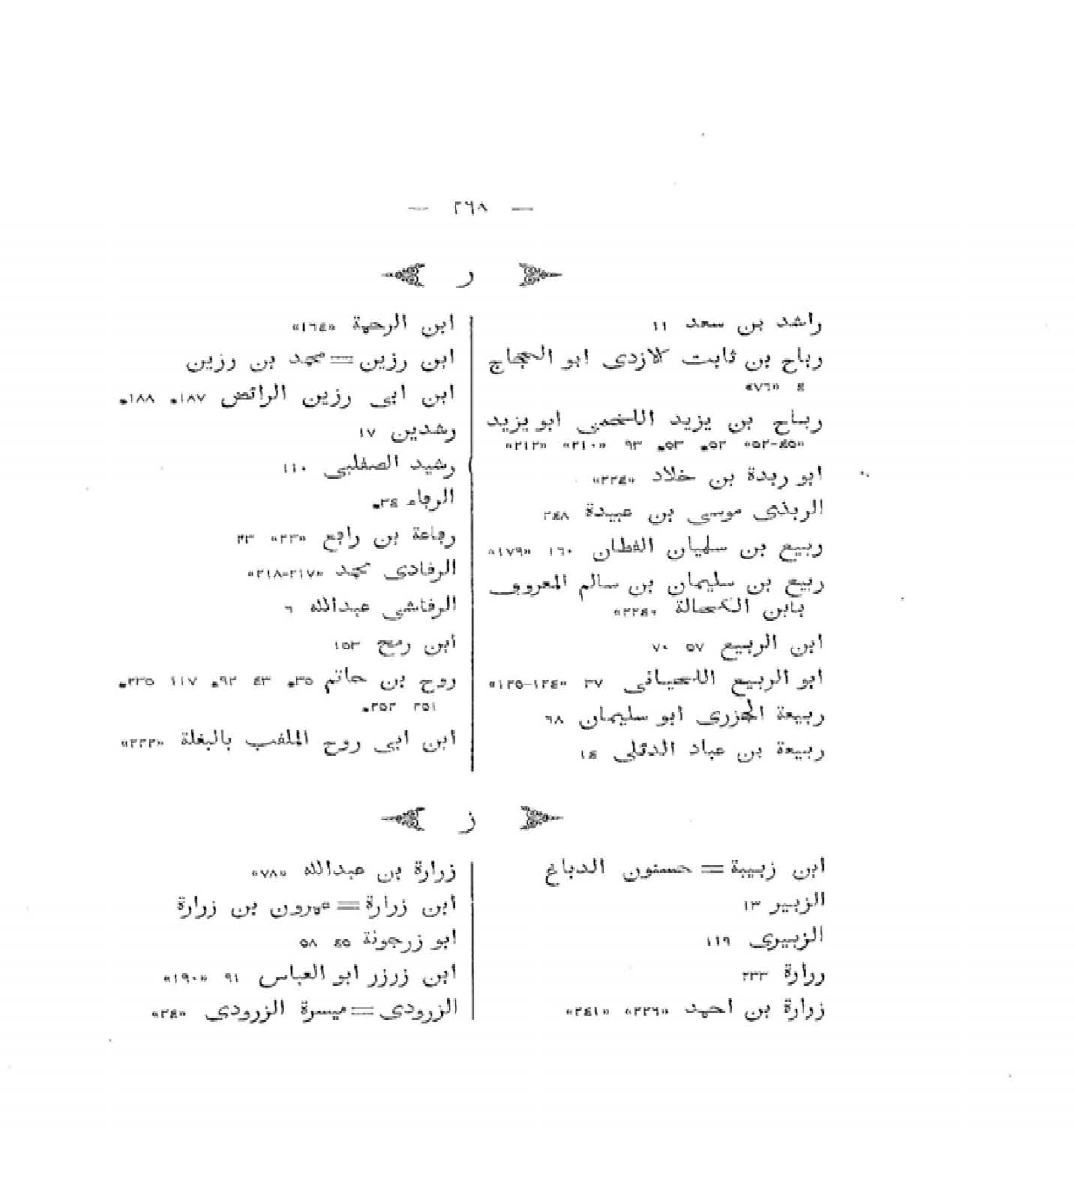 — ٢٦٨ —
ر
راشد بن سعد ١١
رباح بن ثابت كلازدى ابو الحجاج
٤ «٧٦»
رباح بن يزيد اللخمي ابو يزيد
«٤٥-٥٢» ٥٢، ٥٣، ٩٣ «٢١٠» «٢١٢»
ابو ربدة بن خلاد «٢٢٤»
الربذى موسى بن عبيدة ٢٤٨
ربيع بن سليمان القطان ١٦٠ «١٧٩»
ربيع بن سليمان بن سالم المعروف
بابن الكحالة «٢٢٤»
ابن الربيع ٥٧ ٧٠
ابو الربيع اللحيانى ٣٧ «١٢٤-١٢٥»
ربيعة الجزرى ابو سليمان ٦٨
ربيعة بن عباد الدئلى ١٤
ابن الرحمة «١٦٤»
ابن رزين = محمد بن رزين
ابن ابى رزين الرائض ١٨٧، ١٨٨،
رشدين ١٧
رشيد الصقلبى ١١٠
الرفاء ٣٤،
رفاعة بن رافع «٢٣» ٢٣
الرفادى محمد «٢١٧-٢١٨»
الرقاشى عبدالله ٦
ابن رمح ١٥٣
روح بن حاتم ٣٥، ٤٣ ٩٢، ١١٧ ٢٣٥،
٢٥١ ٢٥٢،
ابن ابى روح الملقب بالبغلة «٢٣٣»
ز
ابن زبيبة = حسنون الدباغ
الزبير ١٣
الزبيرى ١١٩
زرارة ٢٣٣
زرارة بن احمد «٢٢٦» «٢٤١»
زرارة بن عبدالله «٧٨»
ابن زرارة = عمرون بن زرارة
ابو زرجونة ٤٥ ٥٨
ابن زرزر ابو العباس ٩١ «١٩٠»
الزرودى = ميسرة الزرودى «٢٤»